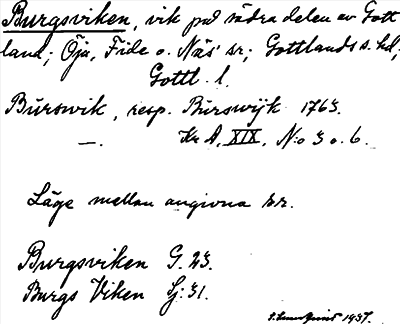 Burgsviken, vik på södra delen av Gott
land; Öja, Fide o. Näs' sr; Gottlands s. hd,
Gottl. l.
Burswik, resp. Burswijk 1763.
—. Kr A, XIX, N:o 3 o. 6.
Läge mellan angivna sr.
Burgsviken G. 23.
Burgs Viken Sj: 31.
1937.